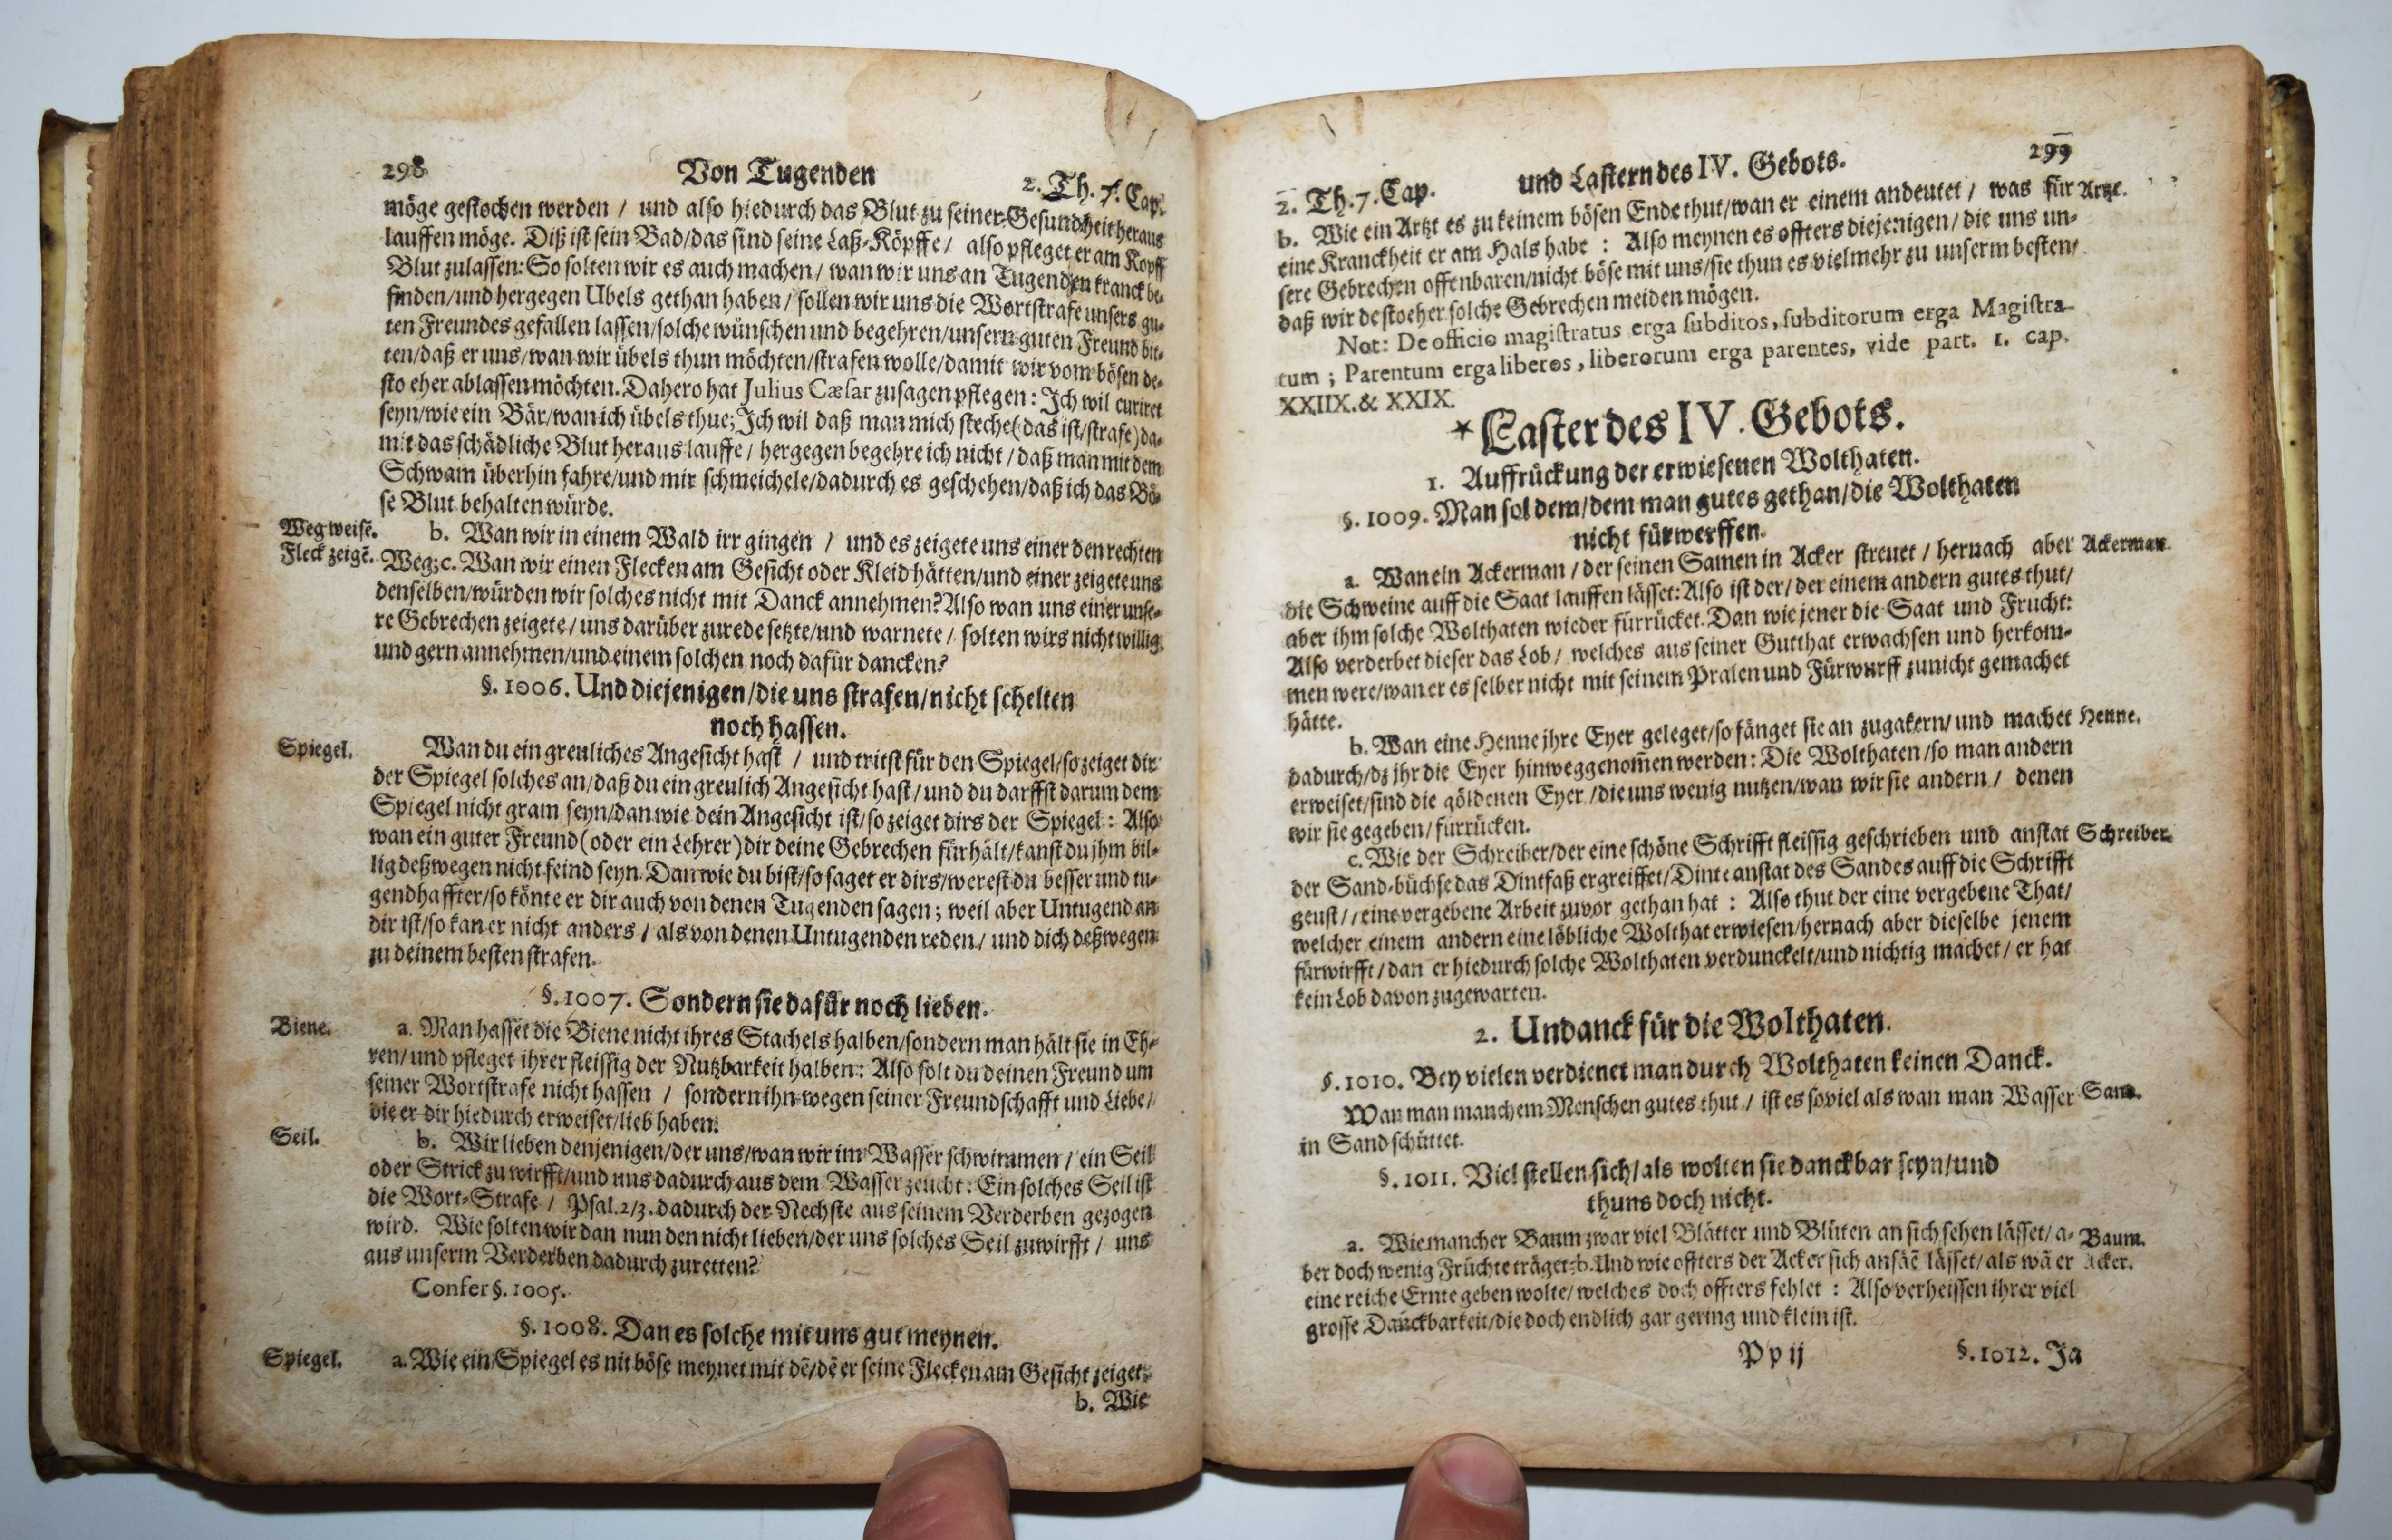 298 Von Tugenden 2. Th. 7. Cap.
möge gestochen werden / und also hiedurch das Blut zu seiner Gesundheit heraus
lauffen möge. Diß ist sein Bad/das sind seine Laß-Köpffe / also pfleget er am Kopff
Blut zulassen: So solten wir es auch machen / wan wir uns an Tugenden kranck be-
finden/und hergegen Ubels gethan haben / sollen wir uns die Wortstrafe unsers gu-
ten Freundes gefallen lassen/solche wünschen und begehren/unsern guten Freund bit-
ten/daß er uns/wan wir übels thun möchten/strafen wolle/damit wir vom bösen de-
sto eher ablassen möchten. Dahero hat Julius Cæsar zusagen pflegen: Ich wil curiret
seyn/wie ein Bär/wan ich übels thue; Ich wil daß man mich steche (das ist/strafe) da-
mit das schädliche Blut heraus lauffe / hergegen begehre ich nicht / daß man mit dem
Schwam überhin fahre/und mir schmeichele/dadurch es geschehen/daß ich das Bö-
se Blut behalten würde.
Weg weisē. b. Wan wir in einem Wald irr gingen / und es zeigete uns einer den rechten
Fleck zeigē. Weg; c. Wan wir einen Flecken am Gesicht oder Kleid hätten/und einer zeigete uns
denselben/würden wir solches nicht mit Danck annehmen? Also wan uns einer unse-
re Gebrechen zeigete / uns darüber zurede setzte/und warnete / solten wirs nicht willig
und gern annehmen/und einem solchen noch dafür dancken?
§. 1006. Und diejenigen/die uns strafen/nicht schelten
noch hassen.
Spiegel. Wan du ein greuliches Angesicht hast / und tritst für den Spiegel/so zeiget dir
der Spiegel solches an/daß du ein greulich Angesicht hast / und du darffst darum dem
Spiegel nicht gram seyn/dan wie dein Angesicht ist/so zeiget dirs der Spiegel: Also
wan ein guter Freund (oder ein Lehrer) dir deine Gebrechen fürhält/kanst du jhm bil-
lig deßwegen nicht feind seyn. Dan wie du bist/so saget er dirs/werest du besser und tu-
gendhaffter/so könte er dir auch von denen Tugenden sagen; weil aber Untugend an
dir ist/so kan er nicht anders / als von denen Untugenden reden / und dich deßwegen
zu deinem besten strafen.
§. 1007. Sondern sie dafür noch lieben.
Biene. a. Man hasset die Biene nicht ihres Stachels halben/sondern man hält sie in Eh-
ren/und pfleget ihrer fleissig der Nutzbarkeit halben: Also solt du deinen Freund um
seiner Wortstrafe nicht hassen / sondern ihn wegen seiner Freundschafft und Liebe /
die er dir hiedurch erweiset/lieb haben.
Seil. b. Wir lieben denjenigen/der uns/wan wir im Wasser schwimmen / ein Seil
oder Strick zu wirfft/und uns dadurch aus dem Wasser zeucht: Ein solches Seil ist
die Wort-Strafe / Psal. 2/3. dadurch der Nechste aus seinem Verderben gezogen
wird. Wie solten wir dan nun den nicht lieben/der uns solches Seil zuwirfft / uns
aus unserm Verderben dadurch zuretten?
Confer §. 1005.
§. 1008. Dan es solche mit uns gut meynen.
Spiegel. a. Wie ein Spiegel es nit böse meynet mit dē/dē er seine Flecken am Gesicht zeiget:
b. Wie
2. Th. 7. Cap. und Lastern des IV. Gebots. 299
b. Wie ein Artzt es zu keinem bösen Ende thut/wan er einem andeutet / was für Artzt.
eine Kranckheit er am Hals habe : Also meynen es offters diejenigen / die uns un-
sere Gebrechen offenbaren/nicht böse mit uns/sie thun es vielmehr zu unserm besten/
daß wir desto eher solche Gebrechen meiden mögen.
Not: De officio magistratus erga subditos, subditorum erga Magistra-
tum ; Parentum erga liberos, liberorum erga parentes, vide part. 1. cap.
XXIIX. & XXIX.
* Laster des IV. Gebots.
1. Auffrückung der erwiesenen Wolthaten.
§. 1009. Man sol dem/dem man gutes gethan/die Wolthaten
nicht fürwerffen.
a. Wan ein Ackerman / der seinen Samen in Acker streuet / hernach aber Ackerman.
die Schweine auff die Saat lauffen lässet: Also ist der/der einem andern gutes thut/
aber ihm solche Wolthaten wieder fürrücket. Dan wie jener die Saat und Frucht:
Also verderbet dieser das Lob / welches aus seiner Gutthat erwachsen und herkom-
men were/wan er es selber nicht mit seinem Pralen und Fürwurff zunicht gemachet
hätte.
b. Wan eine Henne jhre Eyer geleget/so fänget sie an zugakern/und machet Henne.
dadurch/dz jhr die Eyer hinweggenom̄en werden: Die Wolthaten/so man andern
erweiset/sind die göldenen Eyer / die uns wenig nutzen/wan wir sie andern / denen
wir sie gegeben / fürrücken.
c. Wie der Schreiber/der eine schöne Schrifft fleissig geschrieben und anstat Schreiber.
der Sand-büchse das Dintfaß ergreiffet/Dinte anstat des Sandes auff die Schrifft
geust / eine vergebene Arbeit zuvor gethan hat : Also thut der eine vergebene That/
welcher einem andern eine löbliche Wolthat erwiesen/hernach aber dieselbe jenem
fürwirfft / dan er hiedurch solche Wolthaten verdunckelt/und nichtig machet / er hat
kein Lob davon zugewarten.
2. Undanck für die Wolthaten.
§. 1010. Bey vielen verdienet man durch Wolthaten keinen Danck.
Wan man manchem Menschen gutes thut / ist es soviel als wan man Wasser Sand.
in Sand schüttet.
§. 1011. Viel stellen sich/als wolten sie danckbar seyn/und
thuns doch nicht.
a. Wie mancher Baum zwar viel Blätter und Blüten an sich sehen lässet/a- Baum.
ber doch wenig Früchte träget: b. Und wie offters der Acker sich ansäē lässet/als wā er Acker.
eine reiche Ernte geben wolte/welches doch offters fehlet : Also verheissen ihrer viel
grosse Danckbarkeit/die doch endlich gar gering und klein ist.
Pp ij §. 1012. Ja